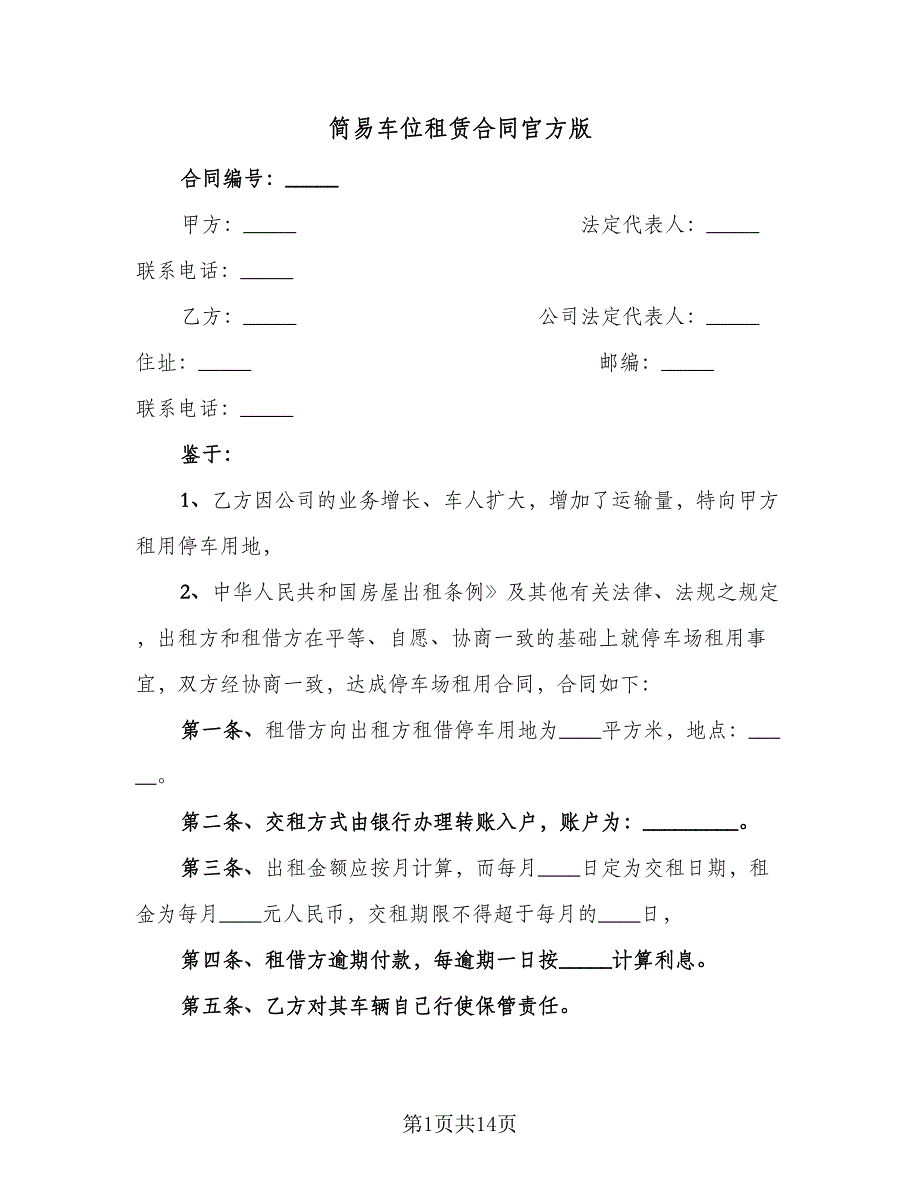 简易车位租赁合同官方版
合同编号：_____
甲方：_____ 法定代表人：_____
联系电话：_____
乙方：_____ 公司法定代表人：_____
住址：_____ 邮编：_____
联系电话：_____
鉴于：
1、乙方因公司的业务增长、车人扩大，增加了运输量，特向甲方
租用停车用地，
2、中华人民共和国房屋出租条例》及其他有关法律、法规之规定
，出租方和租借方在平等、自愿、协商一致的基础上就停车场租用事
宜，双方经协商一致，达成停车场租用合同，合同如下：
第一条、租借方向出租方租借停车用地为____平方米，地点：___
__。
第二条、交租方式由银行办理转账入户，账户为：_________。
第三条、出租金额应按月计算，而每月____日定为交租日期，租
金为每月____元人民币，交租期限不得超于每月的____日，
第四条、租借方逾期付款，每逾期一日按_____计算利息。
第五条、乙方对其车辆自己行使保管责任。
第1页共14页